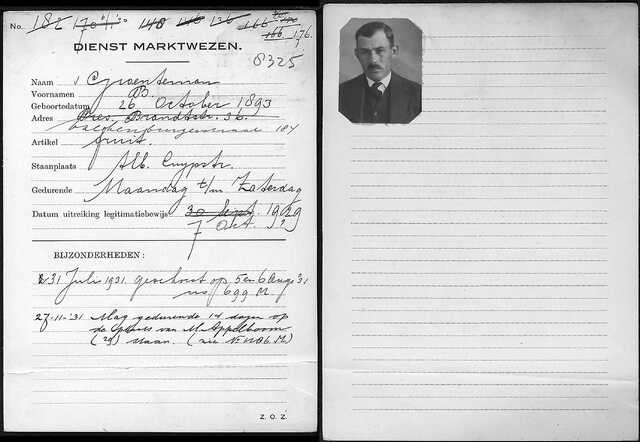 No. 182 170 140 146 136 166 170
166 176.
DIENST MARKTWEZEN.
8325
Naam Groenteman
Voornamen B.
Geboortedatum 26 October 1893
Adres Pres. Brandtstr. 36.
Valckenburgerstraat 184
Artikel fruit.
Staanplaats Alb. Cuypstr.
Gedurende Maandag t/m Zaterdag
Datum uitreiking legitimatiebewijs 30 Sept. 1929
7 Oct. 1929
BIJZONDERHEDEN:
31 Juli 1931 geschorst op 5 en 6 Aug. '31
no 699 M.
27-11-'31 Mag gedurende 14 dagen op
de plaats van M. Appelboom
(29) staan. (zie No 1106 M.)
Z.O.Z.